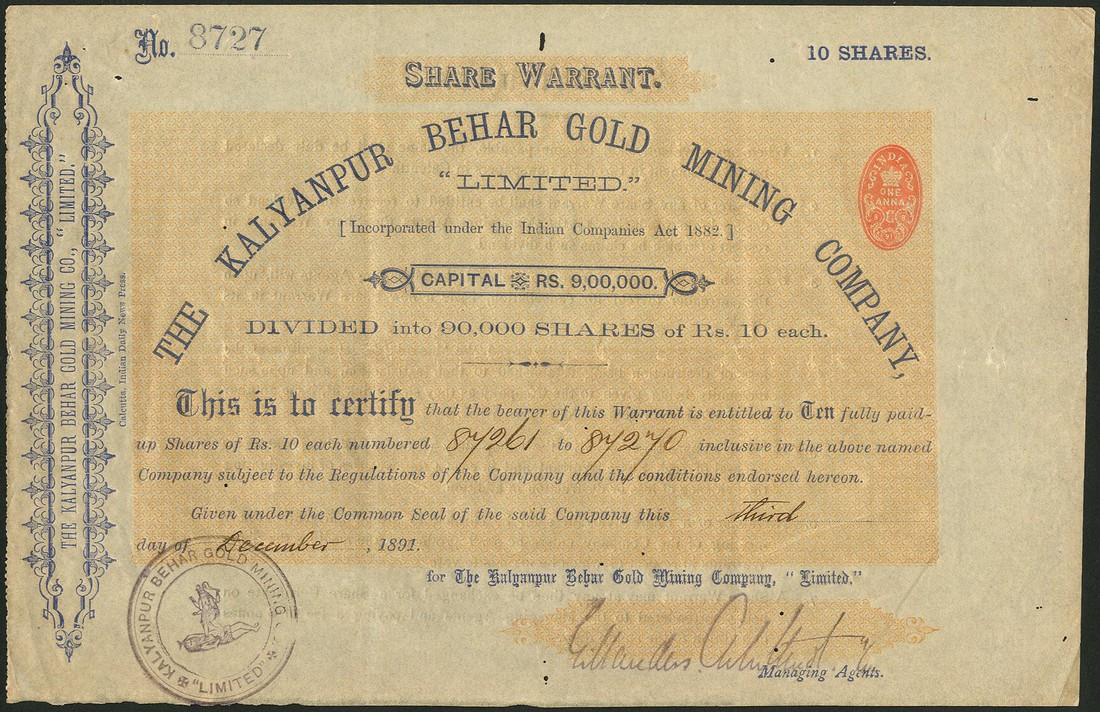 No. 8727
10 SHARES.
SHARE WARRANT.
THE KALYANPUR BEHAR GOLD MINING COMPANY,
"LIMITED."
[Incorporated under the Indian Companies Act 1882.]
CAPITAL RS. 9,00,000.
DIVIDED into 90,000 SHARES of Rs. 10 each.
This is to certify that the bearer of this Warrant is entitled to Ten fully paid-
up Shares of Rs. 10 each numbered 87261 to 87270 inclusive in the above named
Company subject to the Regulations of the Company and the conditions endorsed hereon.
Given under the Common Seal of the said Company this third
day of December, 1891.
for The Kalyanpur Behar Gold Mining Company, "Limited,"
Managing Agents.
THE KALYANPUR BEHAR GOLD MINING CO., "LIMITED."
Calcutta, Indian Daily News Press.
INDIA
ONE
ANNA
KALYANPUR BEHAR GOLD MINING
"LIMITED"